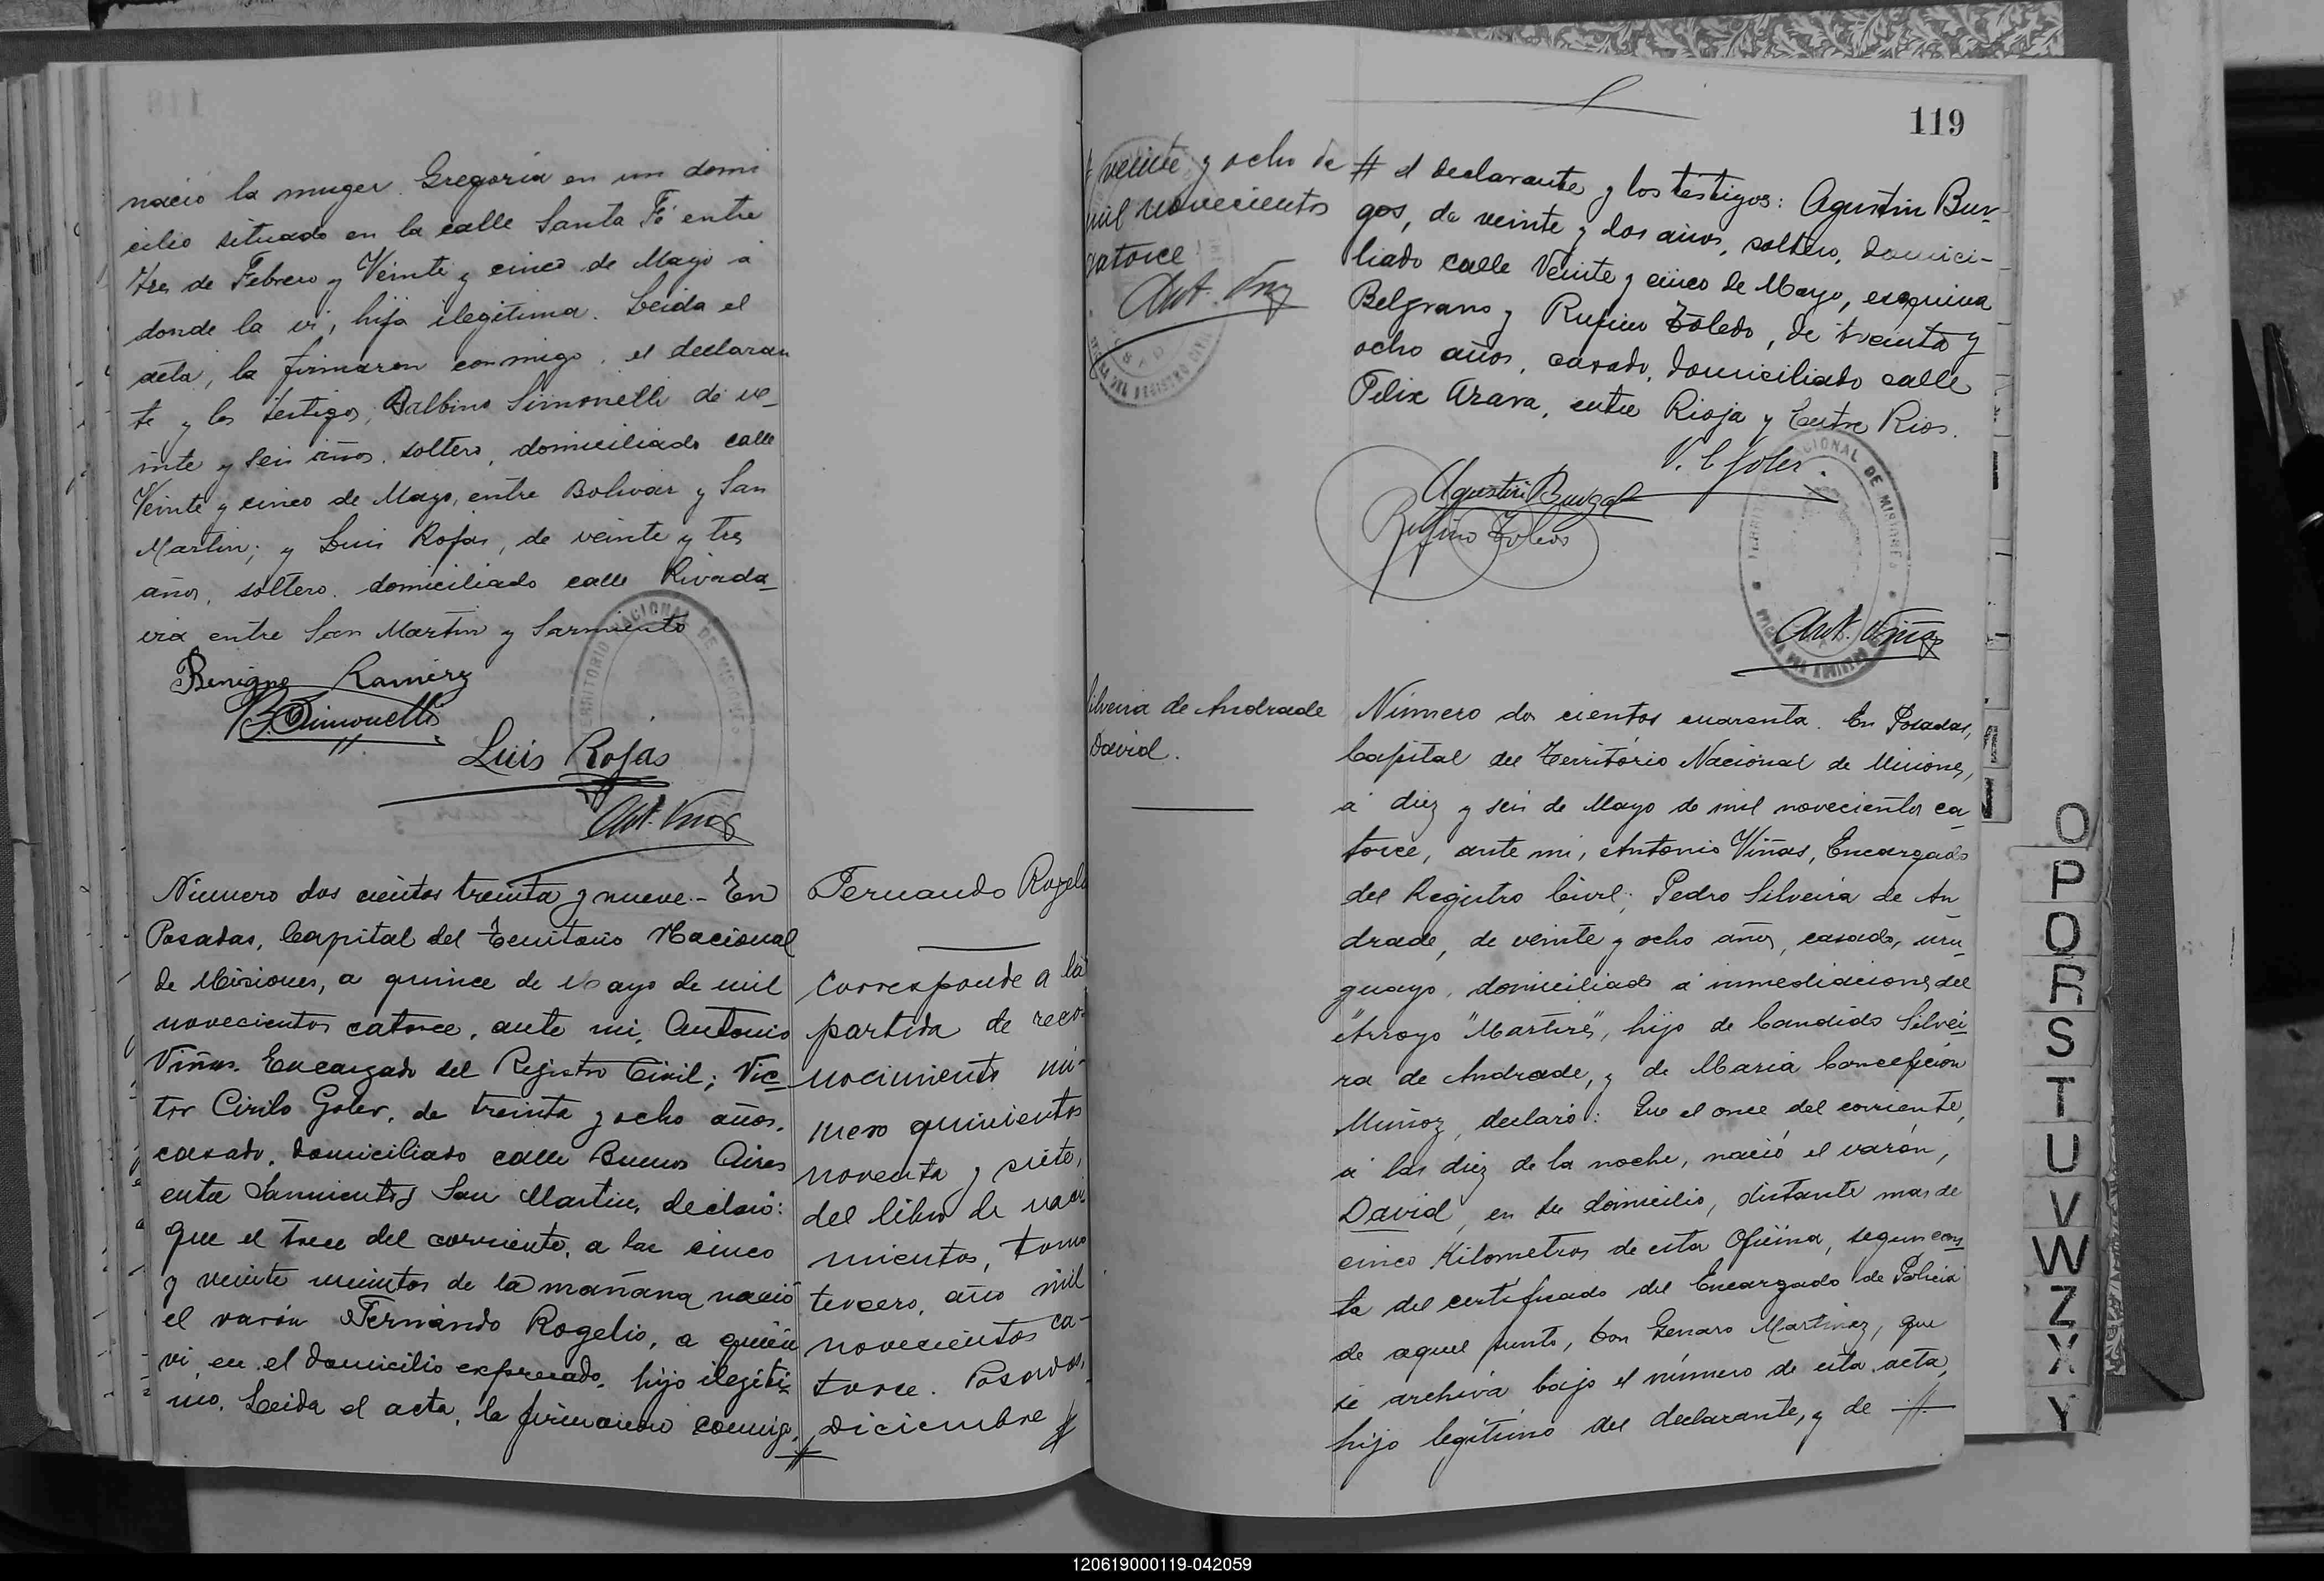 nació la muger Gregoria en un domi
cilio situado en la calle Santa Fé entre
tres de Febrero y Veinte y cinco de Mayo a
donde la vi, hija ilegitima. Leida el
acta, la firmaron conmigo, el declaran
te y los testigos, Balbino Simonelli de ve_
inte y seis años, soltero, domiciliado calle
Veinte y cinco de Mayo, entre Bolivar y San
Martin; y Luis Rojas, de veinte y tres
años, soltero, domiciliado calle Rivada_
via entre San Martin y Sarmiento
Benigno Ramirez
B. Simonelli
Luis Rojas
Ant. Viñas
Número dos cientos treinta y nueve.- En
Posadas, Capital del Territorio Nacional
de Misiones, a quince de Mayo de mil
novecientos catorce, ante mi, Antonio
Viñas. Encargado del Registro Civil; Vic_
tor Cirilo Goler, de treinta y ocho años,
casado, domiciliado calle Buenos Aires
entre Sarmiento y San Martin, declaró:
Que el trece del corriente, a las cinco
y veinte minutos de la mañana nació
el varón Fernando Rogelio, a quien
vi en el domicilio expresado, hijo ilegiti_
mo. Leida el acta, la firmaron conmigo, #
Fernando Rogelio
Corresponde a la
partida de reco-
nocimiento nú-
mero quinientos
noventa y siete,
del libro de naci-
mientos, tomo
tercero, año mil
novecientos ca-
torce. Posadas,
Diciembre #
119
# veinte y ocho de
mil novecientos
catorce
Ant. Viñas
# el declarante y los testigos: Agustin Bur-
gos, de veinte y dos años, soltero, domici-
liado calle Veinte y cinco de Mayo, esquina
Belgrano y Rufino Toledo, de treinta y
ocho años, casado, domiciliado calle
Felix Azara, entre Rioja y Entre Rios.
V. C. Goler.
Agustin Burgos
Rufino Toledo
TERRITORIO NACIONAL DE MISIONES
Ant. Viñas
Silveira de Andrade
David.
Número dos cientos cuarenta. En Posadas,
Capital del Território Nacional de Misiones,
a diez y seis de Mayo de mil novecientos ca_
torce, ante mi, Antonio Viñas, Encargado
del Registro Civil; Pedro Silveira de An_
drade, de veinte y ocho años, casado, uru_
guayo, domiciliado á inmediaciones del
Arroyo "Martires", hijo de Candido Silvei_
ra de Andrade, y de Maria Concepción
Muñoz, declaró: Que el once del corriente,
á las diez de la noche, nació el varón,
David, en su domicilio, distante mas de
cinco Kilometros de esta Oficina, segun cons_
ta del certificado del Encargado de Policia
de aquel punto, Don Genaro Martinez, que
se archiva bajo el número de esta acta,
hijo legitimo del declarante, y de #
O
P
Q
R
S
T
U
V
W
Z
X
Y
120619000119-042059